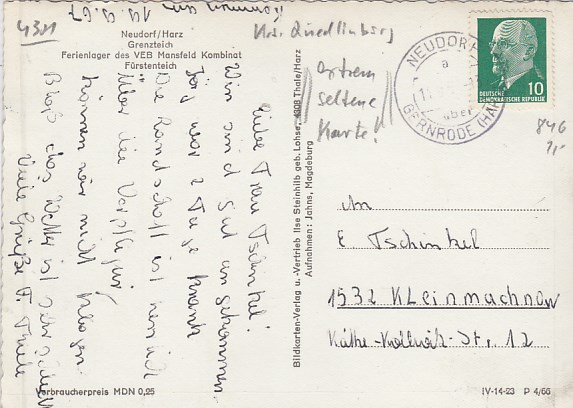 4301
Kommen am 10.9.67
Krs. Quedlinburg
Neudorf/Harz
Grenzteich
Ferienlager des VEB Mansfeld Kombinat
Fürstenteich
Extrem
seltene
Karte!
NEUDORF
über
GERNRODE (HARZ)
DEUTSCHE
DEMOKRATISCHE REPUBLIK
10
846
1,-
Liebe Frau Tschinkel!
Wir sind gut angekommen.
Jörg war 2 Tage krank
Die Landschaft ist herrlich
Über die Verpflegung
können wir nicht klagen.
Bloß das Wetter ist sehr schlecht
Viele Grüße F. Thiele
Bildkarten-Verlag u. -Vertrieb Ilse Steinhilb geb. Lohse, 4308 Thale/Harz
Aufnahmen: Jahns, Magdeburg
An
E. Tschinkel
1532 Kleinmachnow
Käthe-Kollwitz-Str. 12
Verbraucherpreis MDN 0,25
IV-14-23 P 4/66